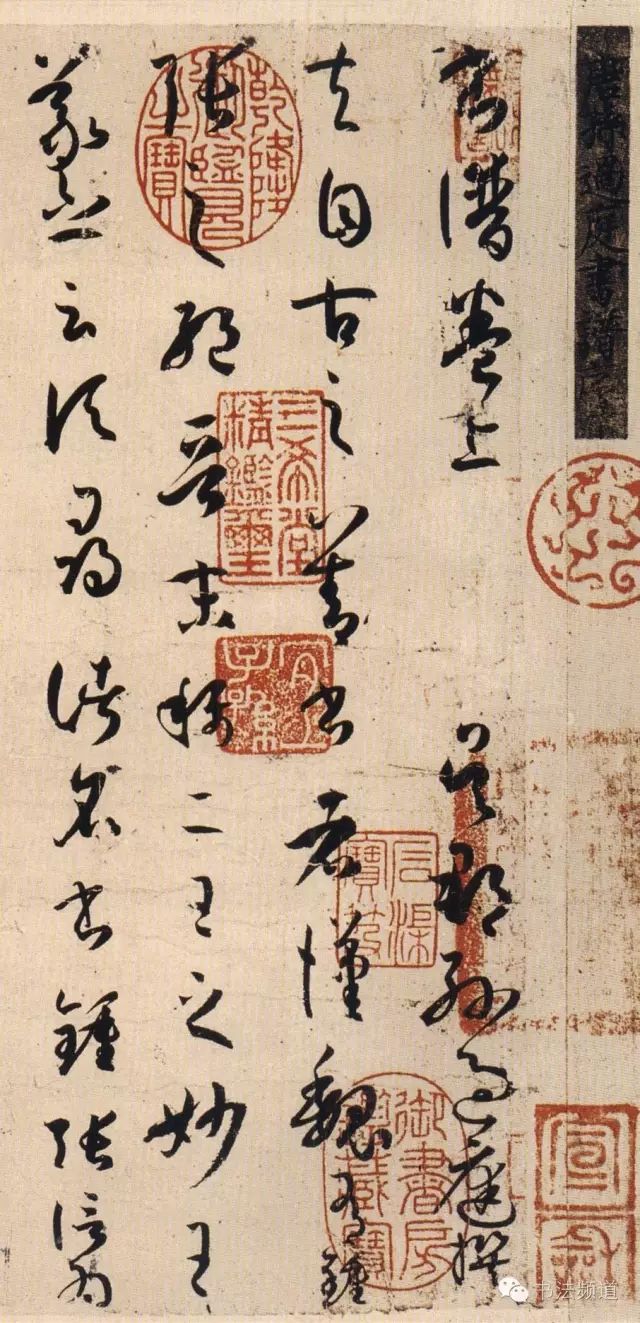 唐孫過庭書譜序
書譜卷上 吳郡孫過庭撰
夫自古之善書者漢魏有鍾
張之絕晉末稱二王之妙王
羲之云頃尋諸名書鍾張信為
乾隆御覽之寶
三希堂精鑑璽
宜子孫
石渠寶笈
御書房鑑藏寶
宣和
书法频道